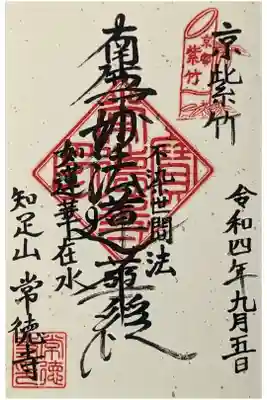 京北紫竹
京都
紫竹
南無妙法蓮華経
不染世間法
如蓮華在水
令和四年九月五日
知足山 常徳寺
常徳